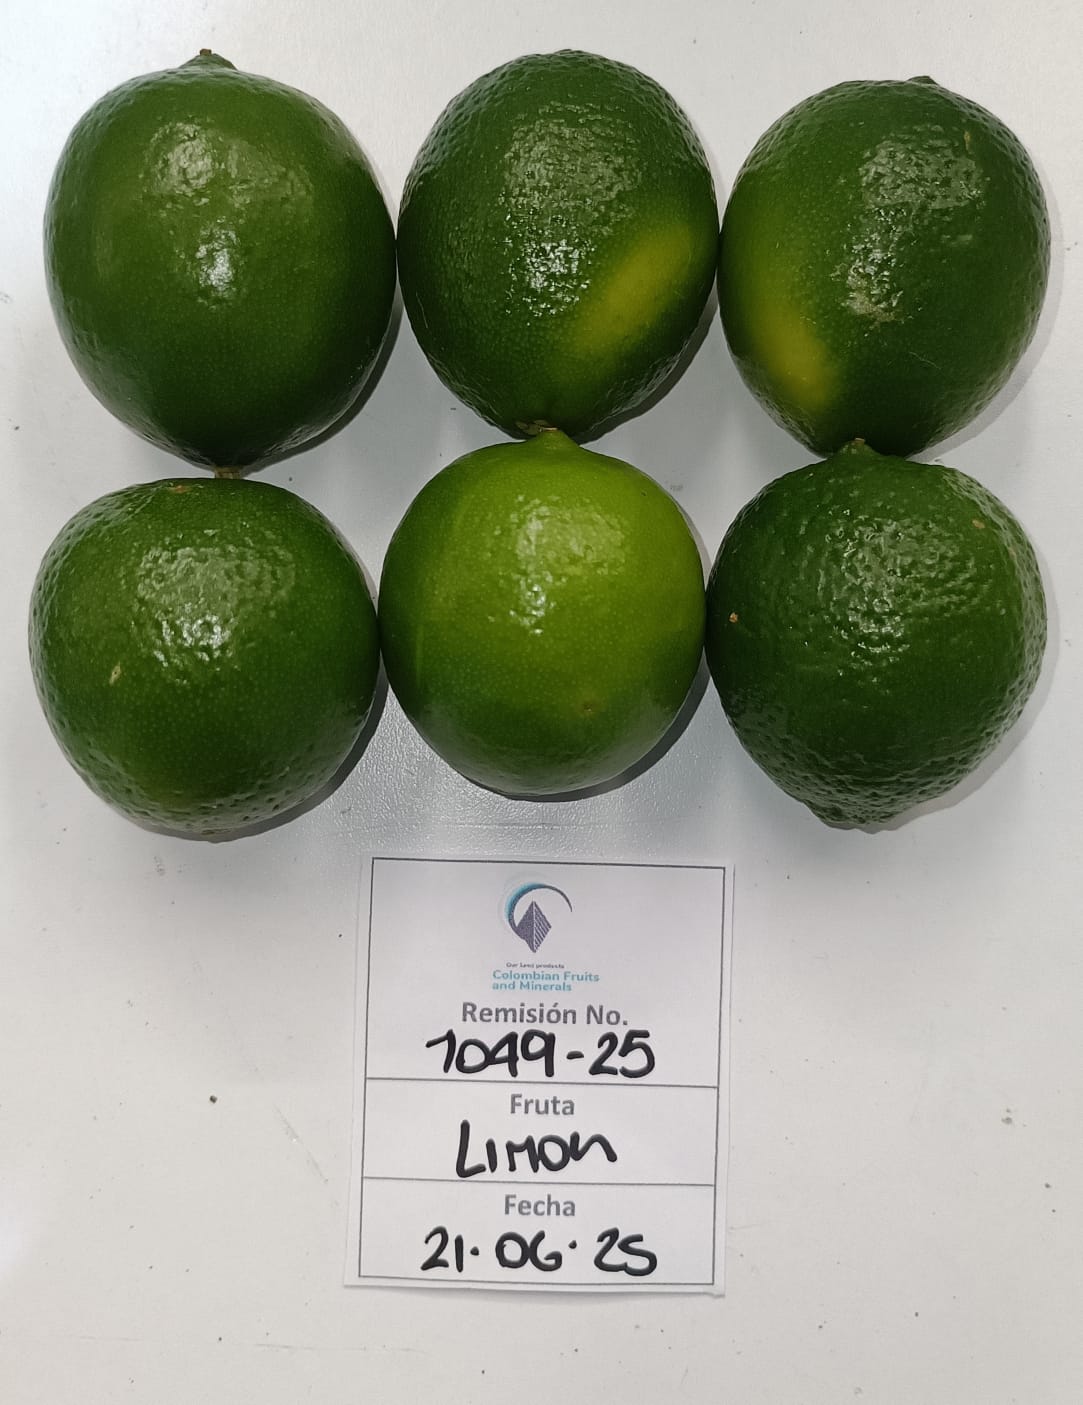 Our Land products
Colombian Fruits
and Minerals
Remisión No.
1049-25
Fruta
LIMON
Fecha
21·06·25